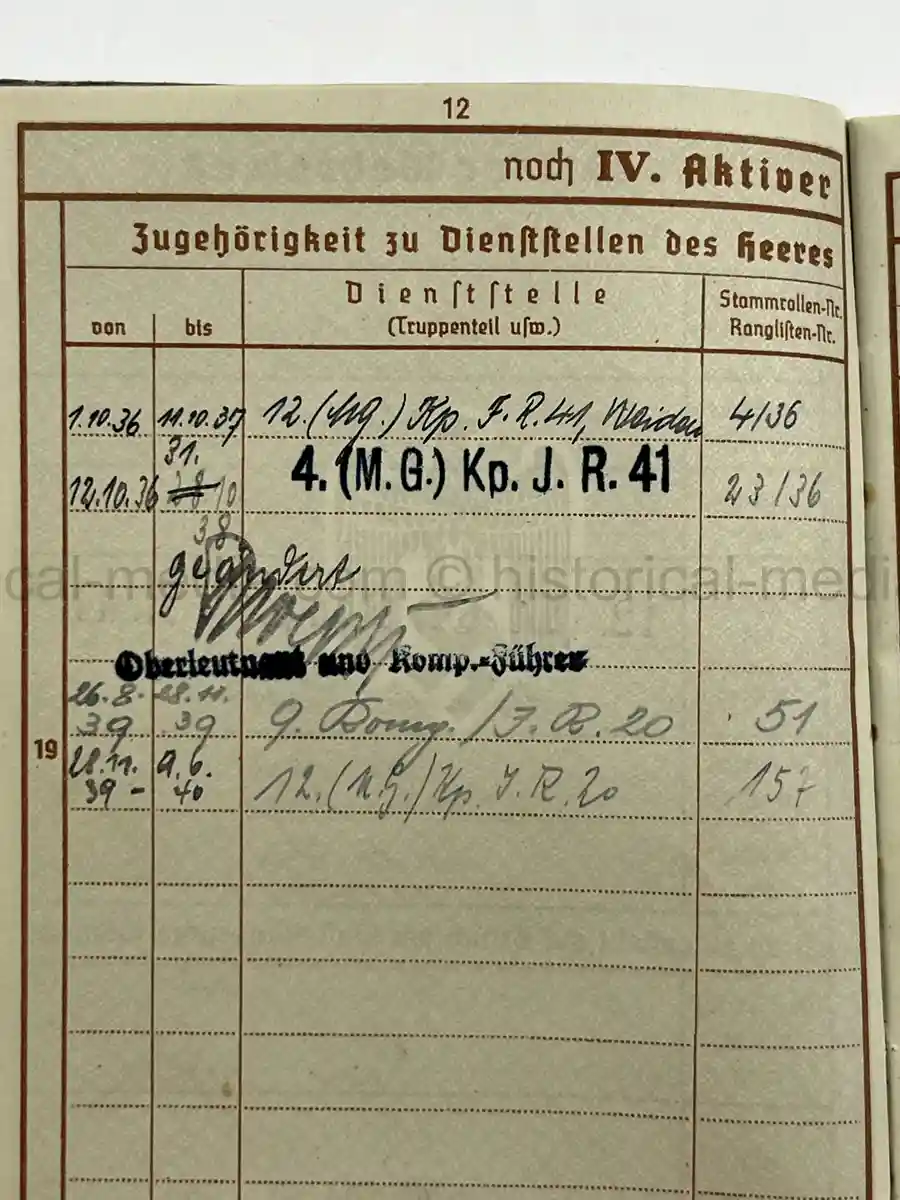 12
noch IV. Aktiver
Zugehörigkeit zu Dienststellen des Heeres
von bis Dienststelle (Truppenteil usw.) Stammrollen-Nr. Ranglisten-Nr.
1.10.36 11.10.37 12. (MG.) Kp. J. R. 41, Weiden 4/36
31.
12.10.36 10 4. (M.G.) Kp. J. R. 41 23/36
38
geändert
Oberleutnant und Komp.-Führer
26.8. 28.11.
39 39 9. /J. R. 20 51
19
28.11. 9.6.
39 - 40 12. (M.G.) Kp. J. R. 20 157
© historical-medi